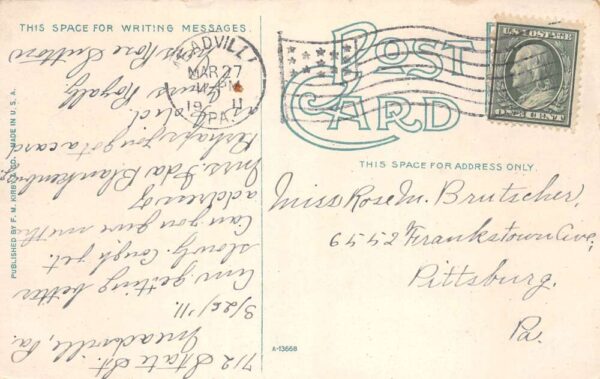 THIS SPACE FOR WRITING MESSAGES.
POST
CARD
MEADVILLE
MAR 27
1911
PA.
U.S. POSTAGE
ONE CENT
THIS SPACE FOR ADDRESS ONLY.
Miss Rose M. Brutscher,
6552 Frankstown Ave,
Pittsburg.
Pa.
712 State St.
Meadville, Pa.
3/26/'11.
Am getting better
slowly. Cough yet.
Can you give me the
address of
Mrs. Ida
Perhaps you got a card
Yours Royally,
Miss Rose Sutton
PUBLISHED BY F. M. KIRBY & CO. MADE IN U.S.A.
A-13668